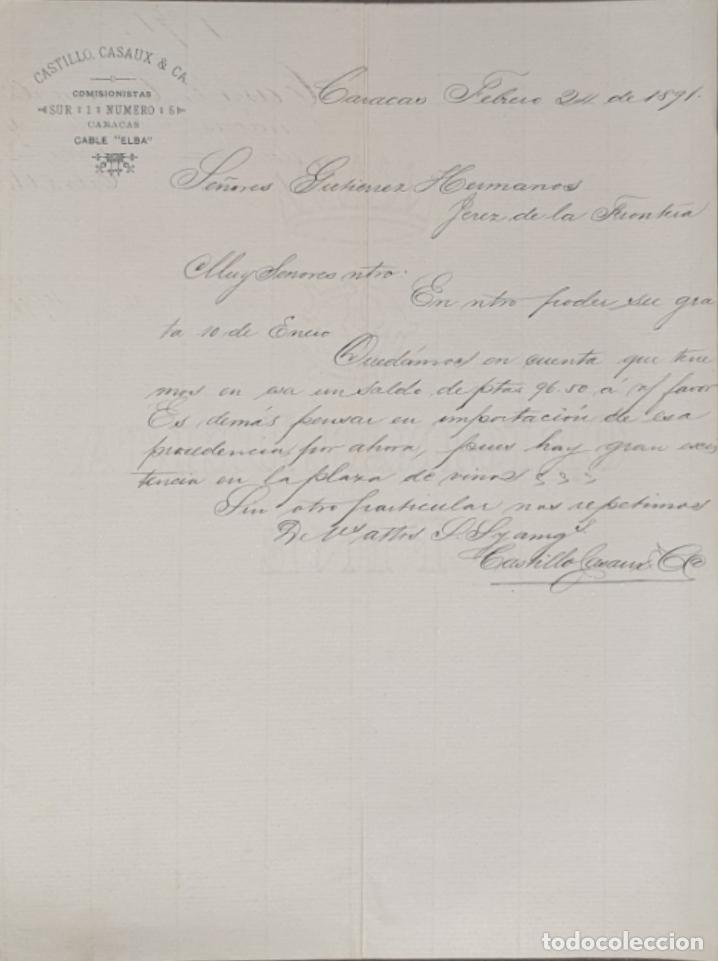 CASTILLO, CASAUX & CA.
COMISIONISTAS
SUR 1 NUMERO 5
CARACAS
CABLE "ELBA"
Caracas Febrero 24 de 1891.
Señores Gutierrez Hermanos
Jerez de la Frontera
Muy Señores ntro:
En ntro poder su gra
ta 10 de Enero
Quedámos en cuenta que tene
mos en esa un saldo de ptas 96.50 á n/ favor
Es demás pensar en importación de esa
procedencia por ahora, pues hay gran exis
tencia en la plaza de vinos
Sin otro particular nos repetimos
De Vs attos S. S y amgs.
Castillo Casaux & Ca
todocoleccion